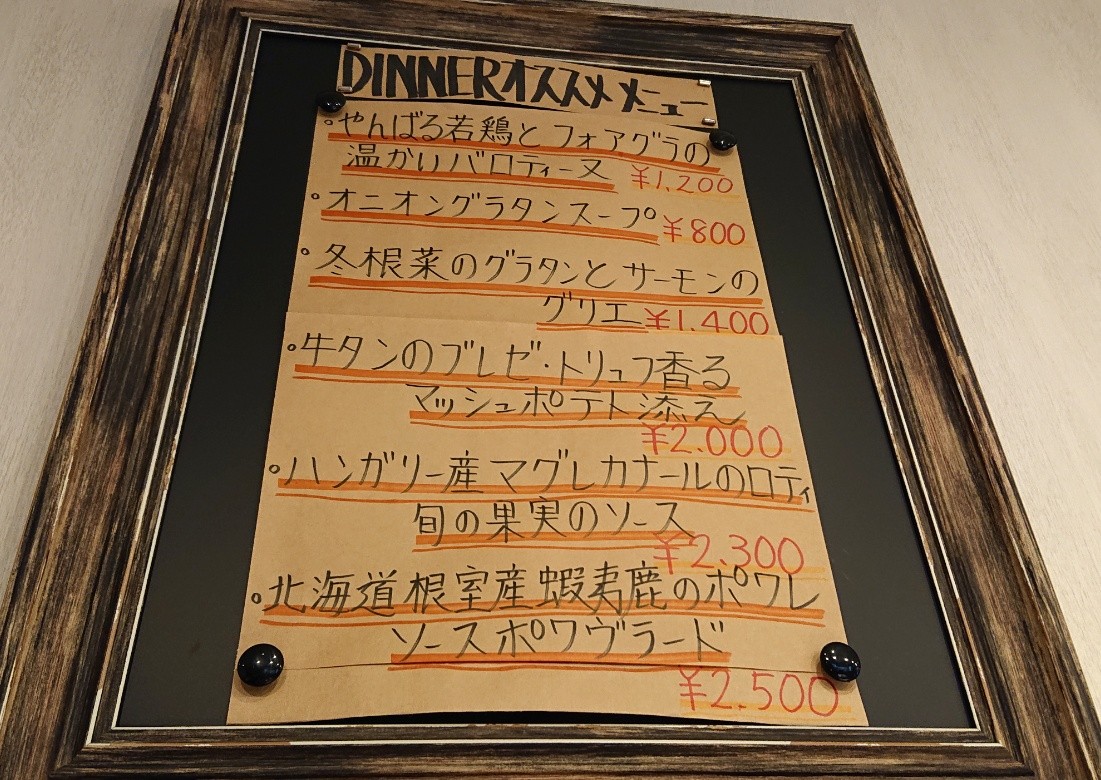 DINNERオススメメニュー
・やんばる若鶏とフォアグラの
温かいバロティーヌ ¥1,200
・オニオングラタンスープ ¥800
・冬根菜のグラタンとサーモンの
グリエ ¥1,400
・牛タンのブレゼ・トリュフ香る
マッシュポテト添え
¥2,000
・ハンガリー産マグレカナールのロティ
旬の果実のソース
¥2,300
・北海道根室産蝦夷鹿のポワレ
ソースポワヴラード
¥2,500